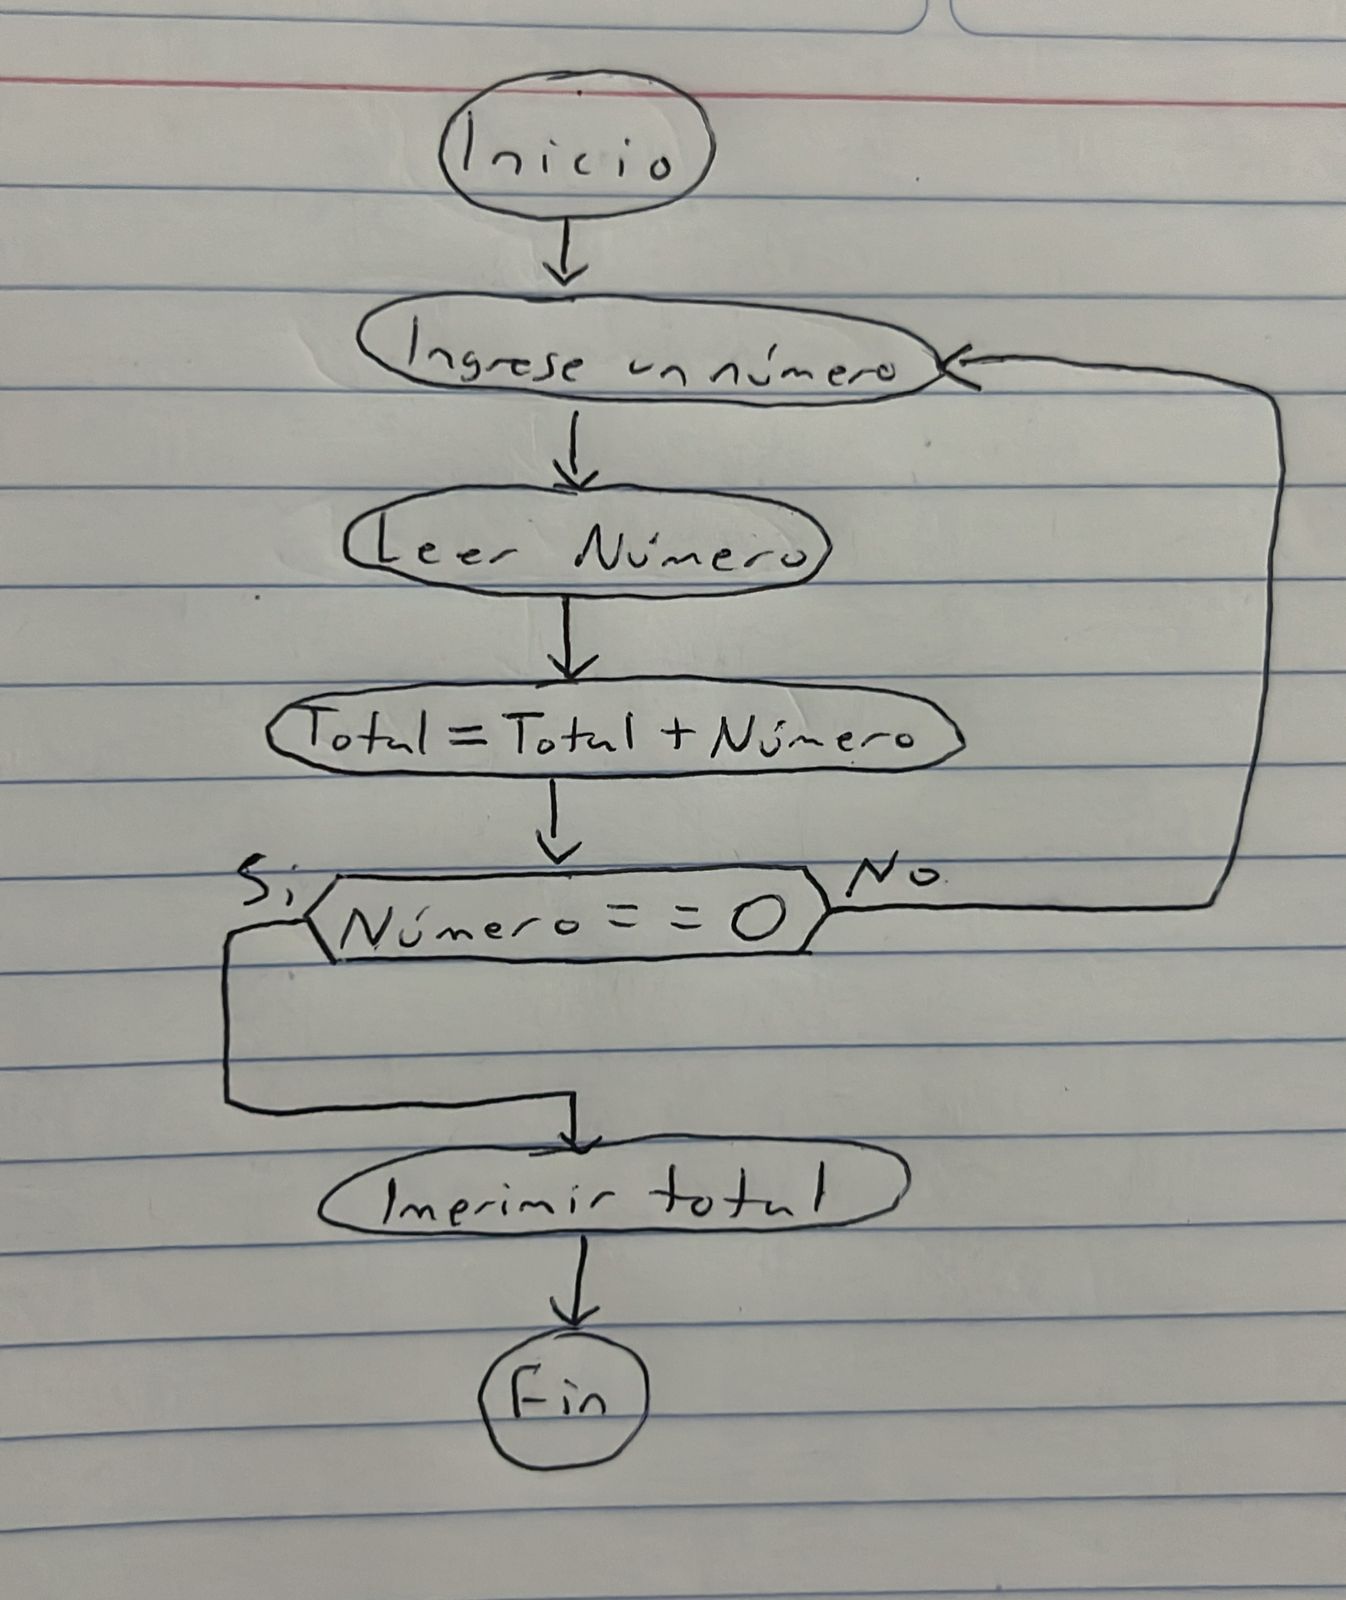 Inicio
Ingrese un número
Leer Número
Total = Total + Número
Si
No
Número == 0
Imprimir total
Fin